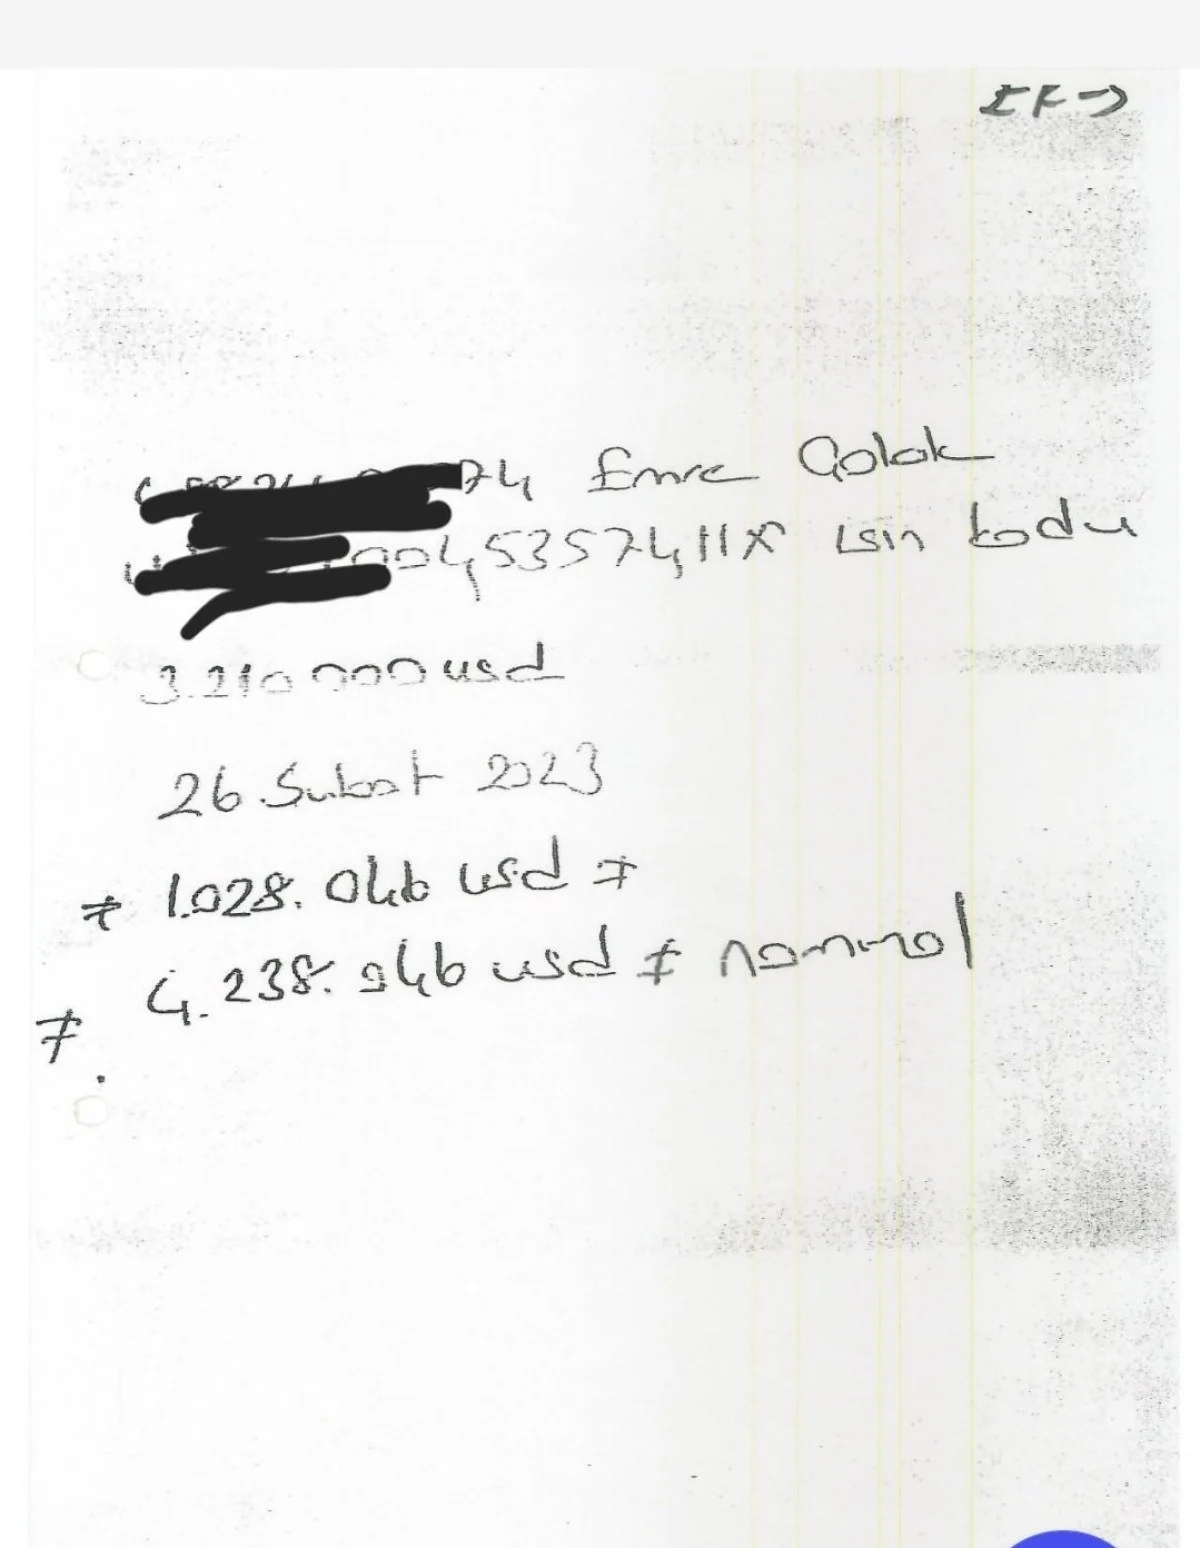 EK →
74 Emre Çolak
0045357411X Isin kodu
3.210 000 usd
26 Subat 2023
≠ 1.028.046 usd ≠
≠ 4.238.946 usd ≠ nominal